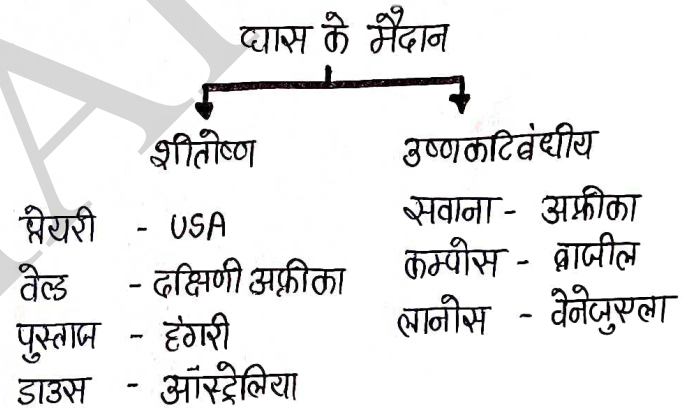 घास के मैदान
शीतोष्ण
प्रेयरी - USA
वेल्ड - दक्षिणी अफ्रीका
पुस्ताज - हंगरी
डाउस - ऑस्ट्रेलिया
उष्णकटिबंधीय
सवाना - अफ्रीका
कम्पोस - ब्राजील
लानोस - वेनेजुएला